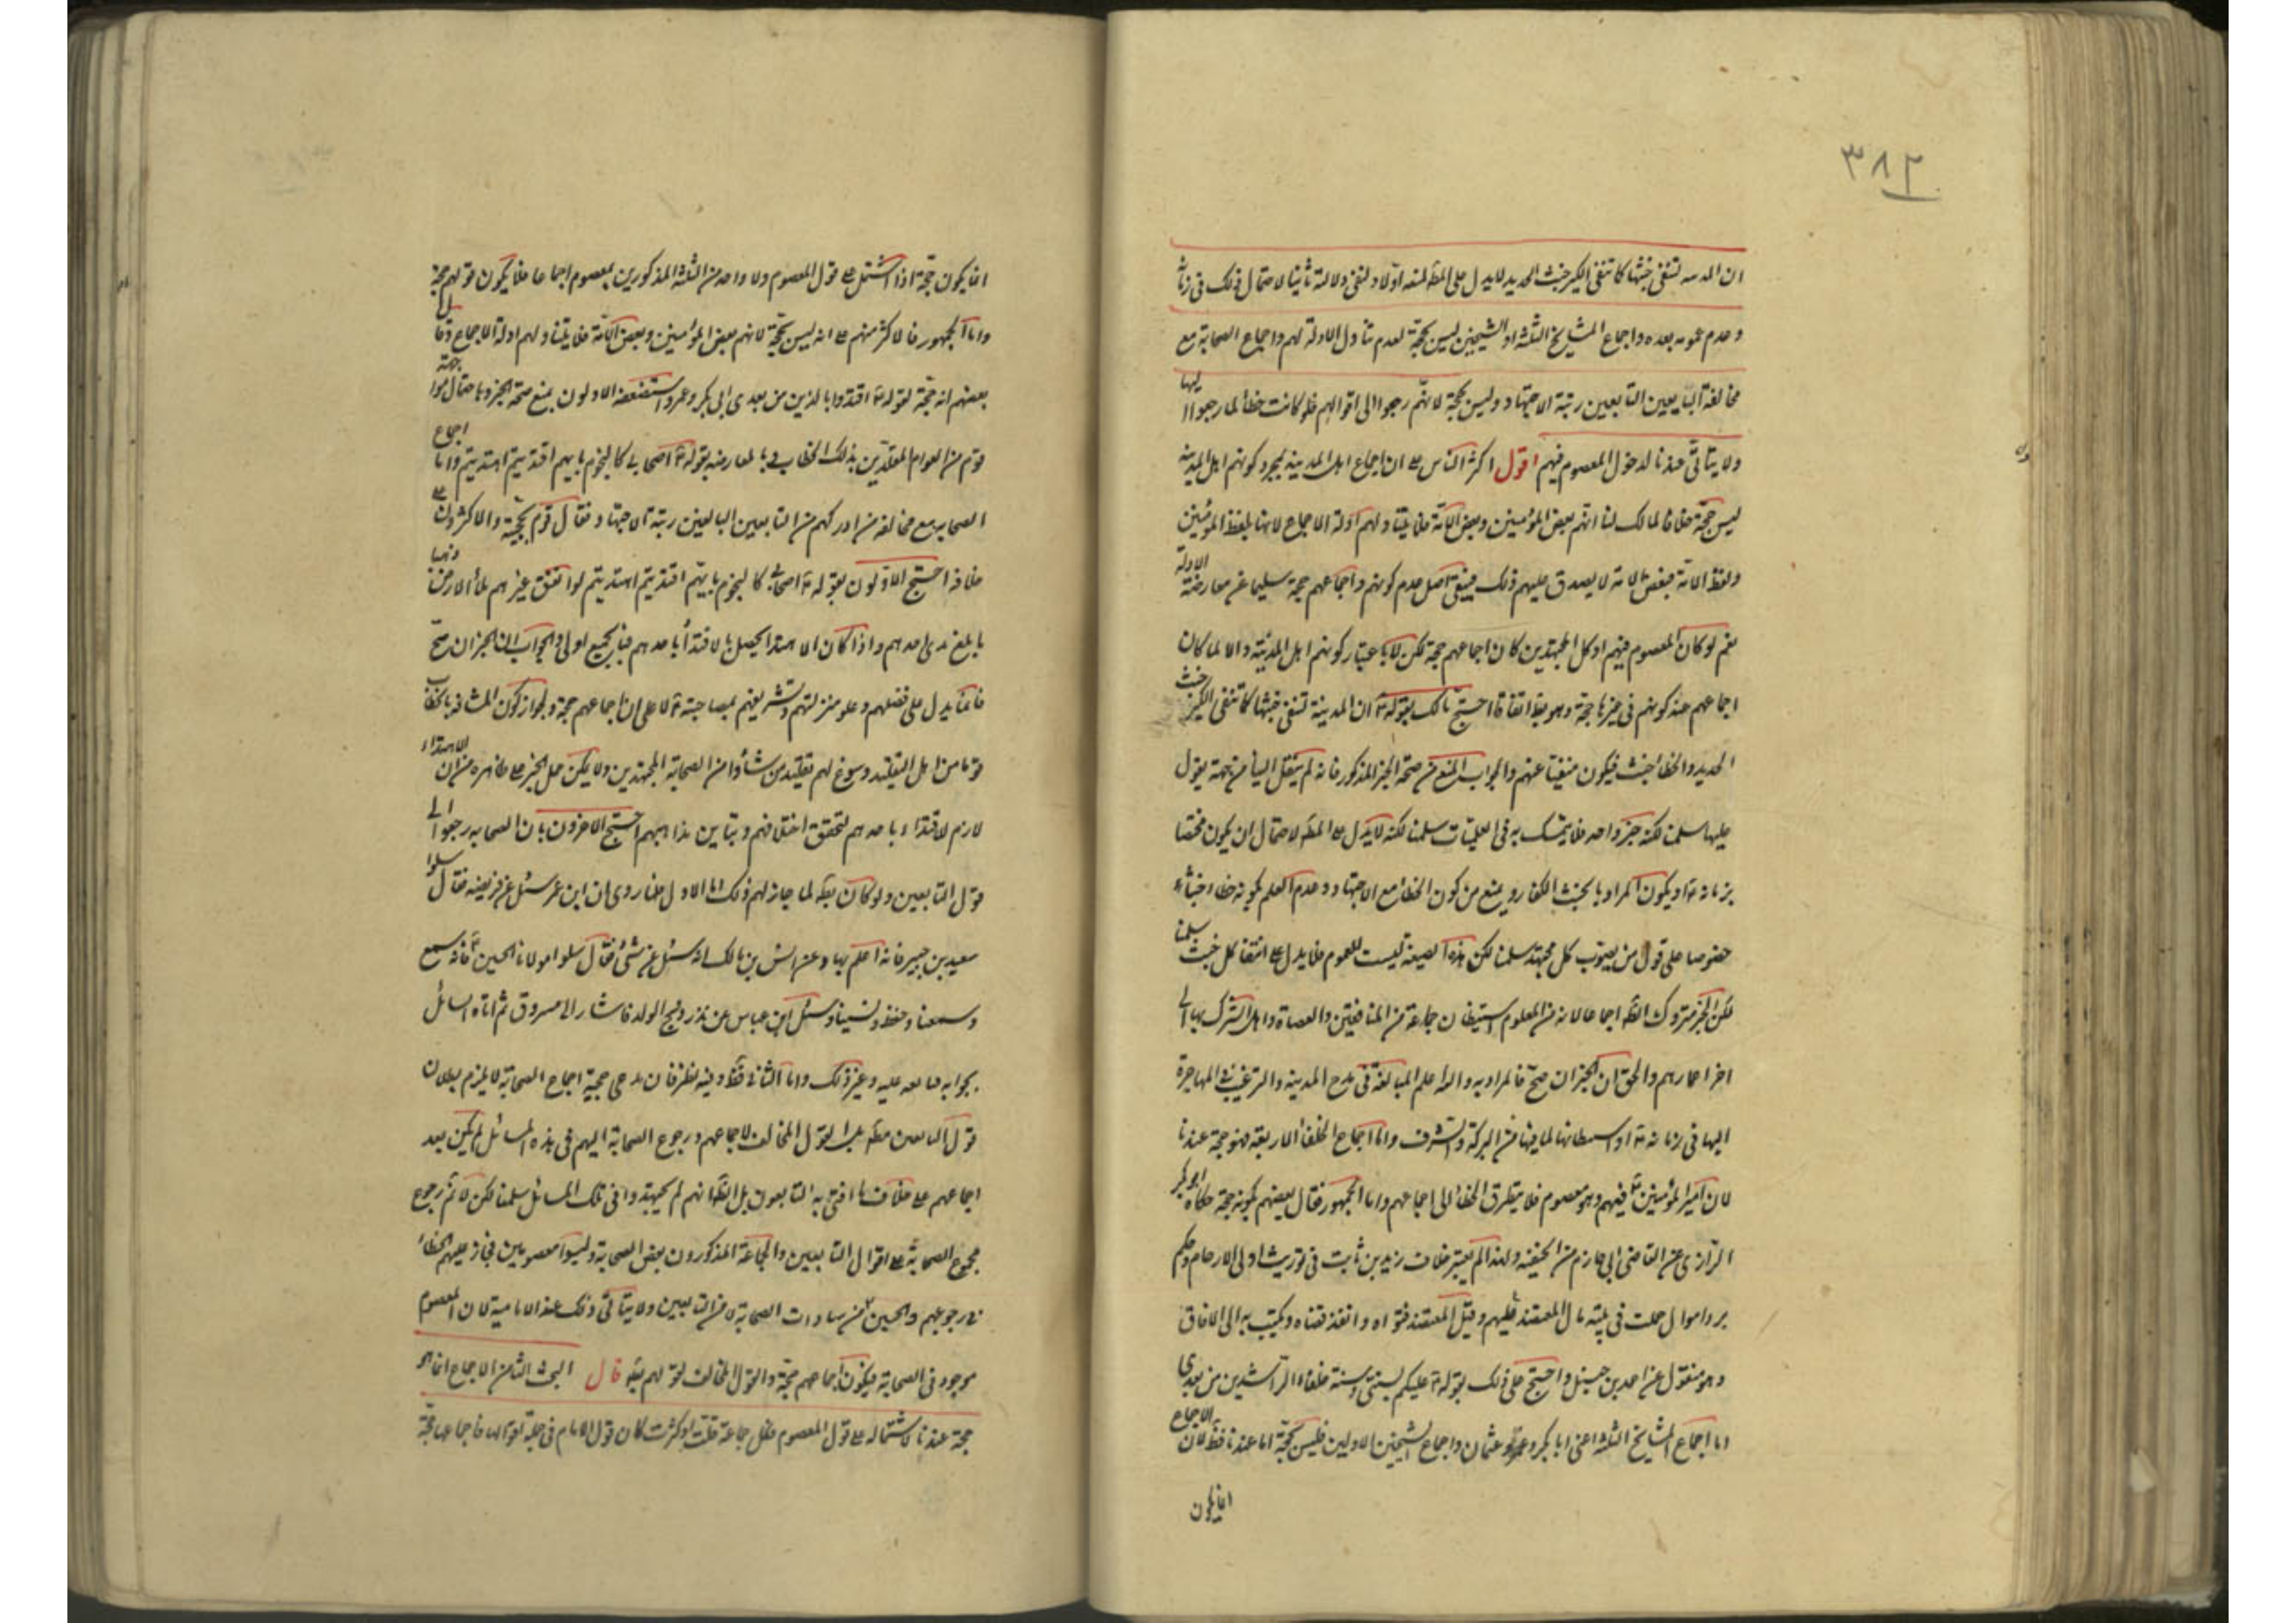 ٣٨٢
ان المدينة لتنفى خبثها كما تنفى الكير خبث الحديد لا يدل على المط لمنعه اولا ولنفى دلالته ثانيا لاحتمال ذلك فى زمانه
وعدم عمومه بعده واجماع المشايخ الثلثة او الشيخين ليس بحجة لعدم تناول الادلة لهم واجماع الصحابة مع
مخالفة التابعين البالغين رتبة الاجتهاد وليس بحجة لانهم رجعوا الى اقوالهم فلو كانت خطأ لما رجعوا اليها
ولا يتأتى عندنا لدخول المعصوم فيهم اقول اكثر الناس على ان اجماع اهل المدينة بمجرد كونهم اهل المدينة
ليس حجة خلافا لمالك لنا انهم بعض المؤمنين وبعض الامة فلا يتناولهم ادلة الاجماع لانها بلفظ المؤمنين
ولفظ الامة فبعض الامة لا يصدق عليهم ذلك فيبقى اصل عدم كونهم واجماعهم حجة سليما عن معارضة الادلة
نعم لو كان المعصوم فيهم او كل المجتهدين كان اجماعهم حجة لكن لا باعتبار كونهم اهل المدينة والا لما كان
اجماعهم عند كونهم فى غيرها حجة وهو بط اتفاقا احتج مالك بقوله ان المدينة لتنفى خبثها كما تنفى الكير خبث
الحديد والخطأ خبث فيكون منفيا عنهم والجواب المنع من صحة الخبر المذكور فانه لم ينقل الينا من جهة يعول
عليها سلمنا لكنه خبر واحد فلا يتمسك به فى العلميات سلمنا لكنه لا يدل على المط لاحتمال ان يكون مختصا
بزمانه او يكون المراد بالخبث الكفار ويمنع من كون الخطأ مع الاجتهاد وعدم العلم بكونه خطاء خبثا
خصوصا على قول من يصوب كل مجتهد سلمنا لكن هذه الصيغة ليست للعموم فلا يدل على انتفا كل خبث سلمنا
لكن الخبر متروك الظ اجماعا لانه من المعلوم استيطان جماعة من المنافقين والعصاة واهل الشرك بها الى
اخر اعمارهم والحق ان الخبر ان صح فالمراد به والله اعلم المبالغة فى مدح المدينة والترغيب فى المهاجرة
اليها فى زمانه او استيطانها لما فيها من البركة والشرف واما اجماع الخلفا الاربعة فهو حجة عندنا
لان امير المؤمنين فيهم وهو معصوم فلا يتطرق الخطأ الى اجماعهم واما الجمهور فقال بعضهم بكونه حجة حكاه ابو بكر
الرازى عن القاضى ابى حازم من الحنفية ولهذا لم يعتبر خلاف زيد بن ثابت فى توريث اولى الارحام وحكم
برد اموال حصلت فى بيت مال المعتضد اليهم وقبل المعتضد فتواه وانفذ قضاه وكتب به الى الافاق
وهو منقول عن احمد بن حنبل واحتج على ذلك بقوله عليكم بسنتى وسنة خلفاء الراشدين من بعدى
اما اجماع المشايخ الثلثة اعنى ابا بكر وعمر وعثمان واجماع الشيخين الاولين فليس بحجة اما عندنا فظ لان الاجماع
انما يكون
انما يكون حجة اذا اشتمل على قول المعصوم ولا واحد من الثلثة المذكورين بمعصوم اجماعا فلا يكون قولهم حجة
واما الجمهور فالاكثر منهم على انه ليس بحجة لانهم بعض المؤمنين وبعض الامة فلا يتناولهم ادلة الاجماع وقال
بعضهم انه حجة لقوله اقتدوا بالذين من بعدى ابى بكر وعمر واستضعفه الاولون بمنع صحة الخبر وباحتمال مواجهة
قوم من العوام المقلدين بذلك الخطاب وبالمعارضة بقوله اصحابى كالنجوم بايهم اقتديتم اهتديتم واما اجماع
الصحابة مع مخالفة من ادركهم من التابعين البالغين رتبة الاجتهاد فقال قوم بحجيته والاكثرون على
خلافه احتج الاولون بقوله اصحابى كالنجوم بايهم اقتديتم اهتديتم لو انفق غيرهم ملأ الارض ذهبا
ما بلغ مدى احدهم واذا كان الاهتدا يحصل بالاقتدأ باحدهم فبالجميع اولى والجواب ان الخبر ان صح
فانما يدل على فضلهم وعلو منزلتهم وتشريفهم بمصاحبته لا على ان اجماعهم حجة ولجواز كون المشافه بالخطاب
قوما من اهل التقليد وسوغ لهم تقليد من شاؤا من الصحابة المجتهدين ولا يمكن حمل الخبر على ظاهره من ان الاهتداء
لازم لاقتداء باحدهم لتحقق اختلافهم وتباين مذاهبهم احتج الاخرون بان الصحابه رجعوا الى
قول التابعين ولو كان بط لما جاز لهم ذلك اما الاول فلما روى ان ابن عمر سئل عن فريضة فقال سلوا
سعيد بن جبير فانه اعلم بها وعن انس بن مالك انه سئل عن شئ فقال سلوا مولانا الحسين فانه سمع
وسمعنا وحفظ ونسينا وسئل ابن عباس عن نذر ذبح الولد فاشار الى مسروق ثم اتاه السائل
بجوابه فتابعه عليه وغير ذلك واما الثانى فظ وفيه نظر فان مدعى حجية اجماع الصحابة لا يلزم بطلان
قول التابعين مط بل القول المخالف لاجماعهم ورجوع الصحابة اليهم فى هذه المسائل لم يكن بعد
اجماعهم على خلاف ما افتى به التابعون بل الظ انهم لم يجتهدوا فى تلك المسائل سلمنا لكن لا نم رجوع
مجموع الصحابة على اقوال التابعين والجماعة المذكورون بعض الصحابة وليسوا معصومين فجاز عليهم الخطاء
فى رجوعهم والحسين من سادات الصحابة لا من التابعين ولا يتأتى ذلك عند الامامية لان المعصوم
موجود فى الصحابة فيكون اجماعهم حجة والقول المخالف لقولهم بط قال البحث الثامن الاجماع انما هو
حجة عندنا لاشتماله على قول المعصوم فكل جماعة قلت او كثرت كان قول الامام فى جملة اقوالها فاجماعها حجة